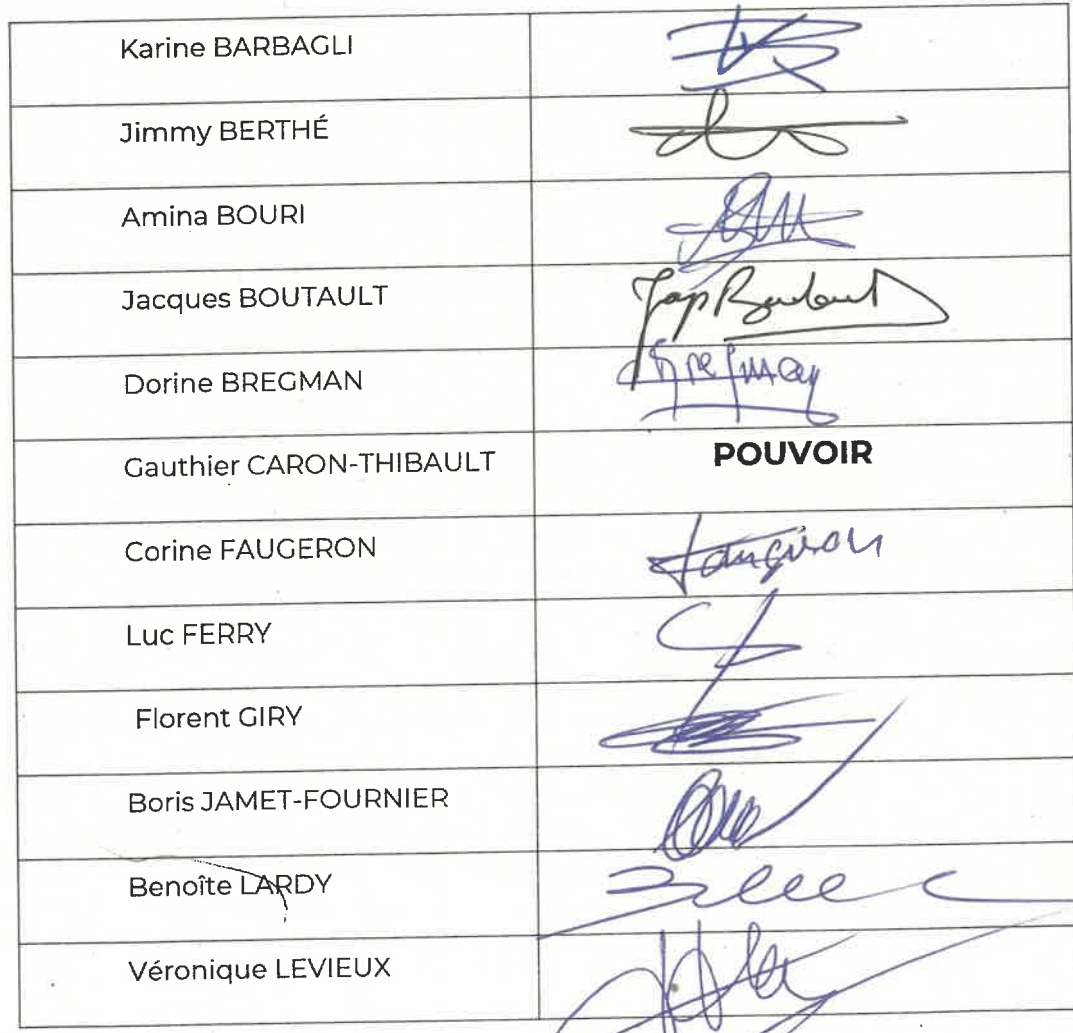 Karine BARBAGLI
Jimmy BERTHÉ
Amina BOURI
Jacques BOUTAULT
Dorine BREGMAN
Bregman
Gauthier CARON-THIBAULT POUVOIR
Corine FAUGERON Faugeron
Luc FERRY
Florent GIRY
Boris JAMET-FOURNIER
Benoîte LARDY
Véronique LEVIEUX